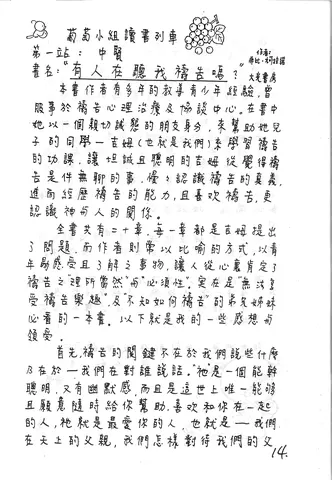 葡萄小組讀書列車
第一站：中賢
書名："有人在聽我禱告嗎？"
作者：
大光書房
本書作者有多年的教導青少年經驗，曾
服事於禱告心理治療及協談中心。在書中
她以一個親切誠懇的朋友身分，來幫助她兒
子的同學—吉姆（也就是我們）來學習禱告
的功課，讓坦誠且聰明的吉姆從覺得禱
告是件無聊的事，慢慢認識禱告的真義，
進而經歷禱告的能力，且喜歡禱告，更
認識神與人的關係。
全書共有二十章，每一章都是吉姆提出
了問題，而作者則常以比喻的方式，以青
年易感受且了解之事物，讓人從心裏肯定了
禱告之理所當然"與"必須性"。實在是"無法享
受禱告樂趣"及"不知如何禱告"的弟兄姊妹
必看的一本書。以下就是我的一些感想與
領受。
首先，禱告的關鍵不在於我們說些什麼
乃在於—我們在對誰說話。"祂是一個能幹
聰明，又有幽默感，而且是這世上唯一能夠
且願意隨時給你幫助，喜歡和你在一起
的人，祂就是最愛你的人，也就是—我們
在天上的父親，我們怎樣對待我們的父
14.